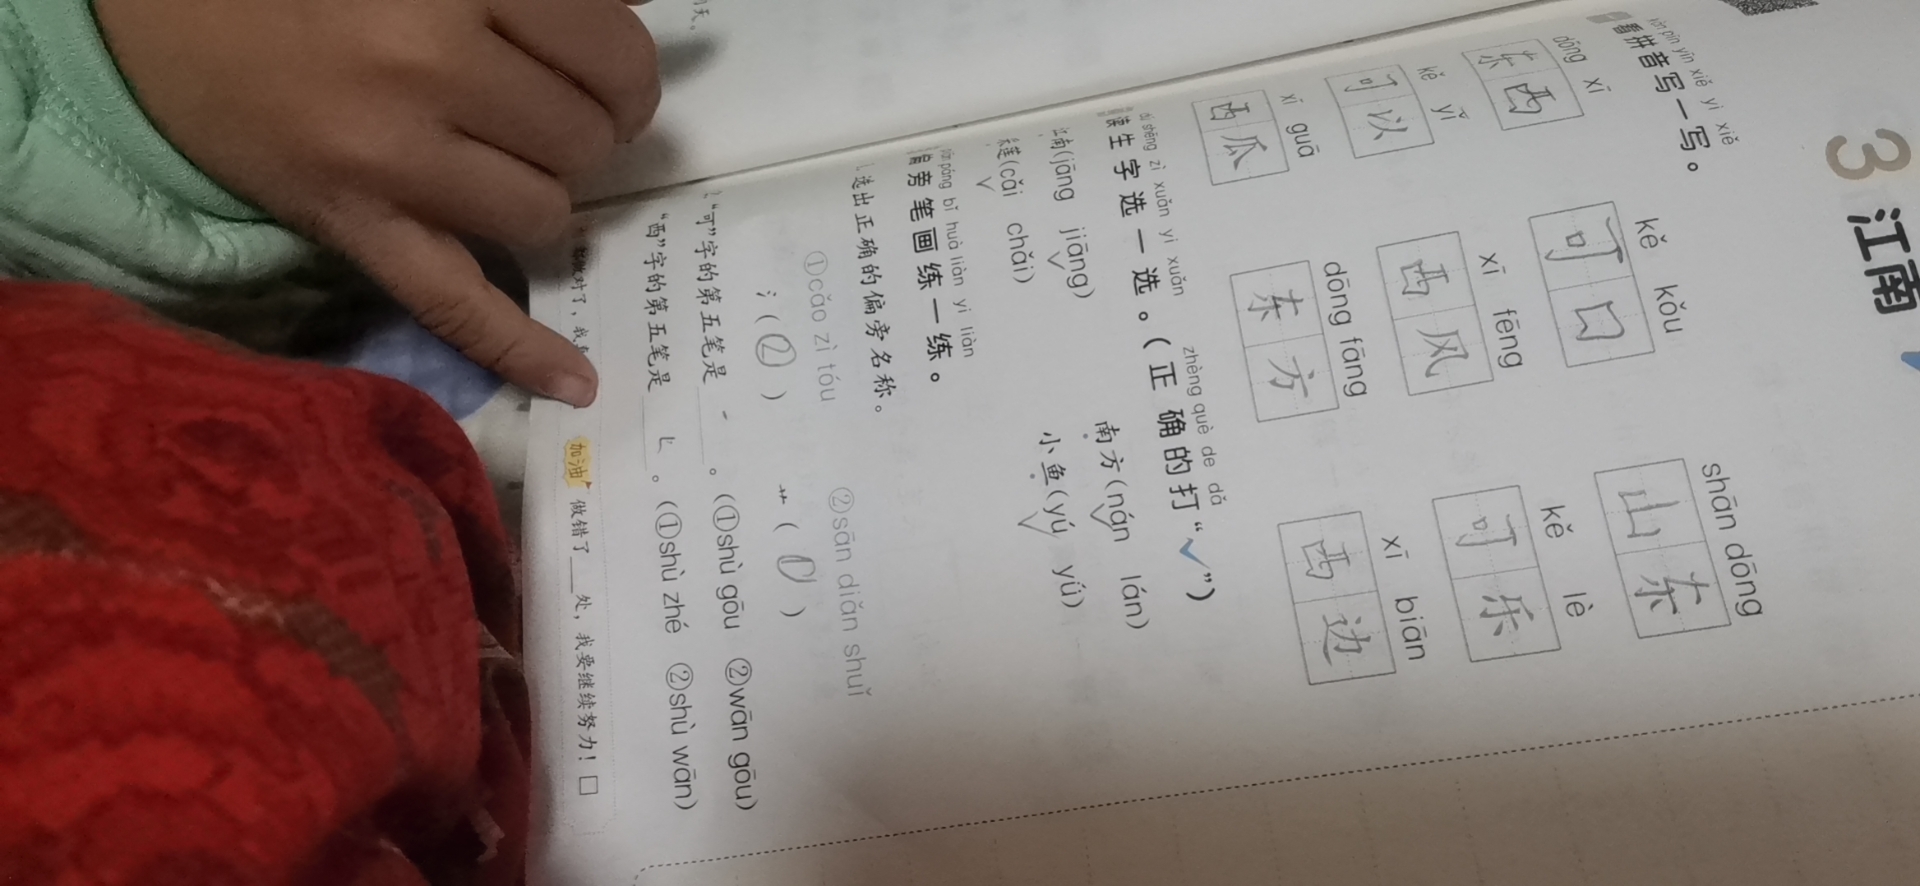 3 江南
kàn pīn yīn xiě yì xiě
看拼音写一写。
dōng xī kě kǒu shān dōng
东西 可口 山东
kě yǐ xī fēng kě lè
可以 西风 可乐
xī guā dōng fāng xī biān
西瓜 东方 西边
shēng zì xuǎn yi xuǎn zhèng què de dǎ
生字选一选。(正确的打“✓”)
江南(jāng jiāng) 南方(nán lán)
采莲(cǎi chǎi) 小鱼(yú yǘ)
piān páng bǐ huà liàn yi liàn
偏旁笔画练一练。
1.选出正确的偏旁名称。
①cǎo zì tóu ②sān diǎn shuǐ
氵(②) 艹(①)
2.“可”字的第五笔是 。(①shù gōu ②wān gōu)
“西”字的第五笔是 。(①shù zhé ②shù wān)
都做对了,我 加油 做错了 处,我要继续努力!□
天。